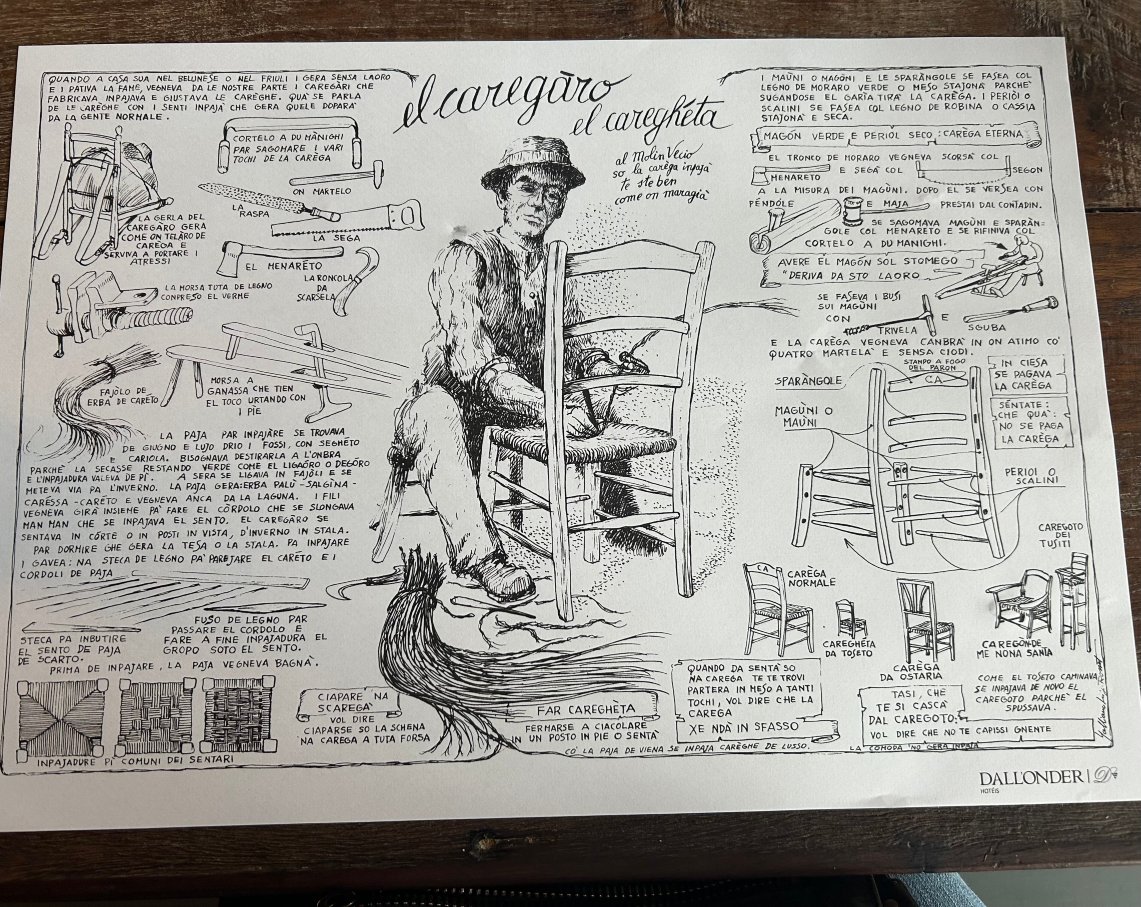 el caregàro
el careghéta
al Molin Vecio
so la carèga inpajà
te ste ben
come on maragià
QUANDO A CASA SUA NEL BELUNESE O NEL FRIULI I GERA SENSA LAORO
E I PATIVA LA FAME, VEGNEVA DA LE NOSTRE PARTE I CAREGÀRI CHE
FABRICAVA INPAJAVA E GIUSTAVA LE CARÈGHE. QUA' SE PARLA
DE LE CARÈGHE CON I SENTI INPAJÀ CHE GERA QUELE DOPARÀ
DA LA GENTE NORMALE.
CORTELO A DU MÀNIGHI
PAR SAGOMARE I VARI
TOCHI DE LA CARÈGA
ON MARTELO
LA
RASPA
LA SEGA
LA GERLA DEL
CAREGÀRO GERA
COME ON TELÀRO DE
CARÈGA E
SERVIVA A PORTARE I
ATRESSI
EL MENARÉTO
LA RONCOLA
DA
SCARSELA
LA MORSA TUTA DE LEGNO
CONPRESO EL VERME
FAJÒLO DE
ERBA DE CARÉTO
MORSA A
GANASSA CHE TIEN
EL TOCO URTANDO CON
I PIE
LA PAJA PAR INPAJÀRE SE TROVAVA
DE GIUGNO E LUJO DRIO I FOSSI, CON SEGHÉTO
E CARIOLA. BISOGNAVA DESTIRARLA A L'ONBRA
PARCHÈ LA SECASSE RESTANDO VERDE COME EL LIGAÓRO O DEGÓRO
E L'INPAJADURA VALEVA DE PÌ. A SERA SE LIGAVA IN FAJÒLI E SE
METEVA VIA PA L'INVERNO. LA PAJA GERA: ERBA PALÙ - SALGINA -
CARÉSSA - CARÉTO E VEGNEVA ANCA DA LA LAGUNA. I FILI
VEGNEVA GIRÀ INSIEME PA' FARE EL CÒRDOLO CHE SE SLONGAVA
MAN MAN CHE SE INPAJAVA EL SENTO. EL CAREGÀRO SE
SENTAVA IN CÓRTE O IN POSTI IN VISTA, D'INVERNO IN STALA.
PAR DORMIRE GHE GERA LA TESA O LA STALA. PA INPAJARE
I GAVEA: NA STECA DE LEGNO PA' PAREJARE EL CARÉTO E I
CORDOLI DE PAJA
STECA PA INBUTIRE
EL SENTO DE PAJA
DE SCARTO.
FUSO DE LEGNO PAR
PASSARE EL CORDOLO E
FARE A FINE INPAJADURA EL
GROPO SOTO EL SENTO.
PRIMA DE INPAJARE, LA PAJA VEGNEVA BAGNÀ.
INPAJADURE PI' COMUNI DEI SENTARI
CIAPARE 'NA
SCAREGÀ
VOL DIRE
CIAPARSE SO LA SCHENA
'NA CAREGA A TUTA FORSA
FAR CAREGHETA
FERMARSE A CIACOLARE
IN UN POSTO IN PIE O SENTÀ
I MAÙNI O MAGÙNI E LE SPARÀNGOLE SE FASEA COL
LEGNO DE MORARO VERDE O MESO STAJONÀ PARCHÈ
SUGANDOSE EL GARIA TIRÀ LA CARÈGA. I PERIÒI O
SCALINI SE FASEA COL LEGNO DE ROBINA O CASSIA
STAJONÀ E SECA.
MAGÓN VERDE E PERIÓL SECO: CARÈGA ETERNA
EL TRONCO DE MORARO VEGNEVA SCORSÀ COL
MENARETO E SEGÀ COL SEGON
A LA MISURA DEI MAGÙNI. DOPO EL SE VERSEA CON
PÉNDÓLE E MAJA PRESTAI DAL CONTADIN.
SE SAGOMAVA MAGÙNI E SPARÀN=
GOLE COL MENARETO E SE RIFINIVA COL
CORTELO A DU MANIGHI.
AVERE EL MAGÓN SÓL STOMEGO
DERIVA DA STO LAORO
SE FASEVA I BUSI
SUI MAGÙNI
CON TRIVELA E SGUBA
E LA CARÈGA VEGNEVA CANBRÀ IN ON ATIMO CO'
QUATRO MARTELÀ E SENSA CIODI.
STANPO A FOGO
DEL PARON
CA
SPARÀNGOLE
MAGÙNI O
MAÙNI
IN CIESA
SE PAGAVA
LA CARÈGA
SÉNTATE:
CHE QUÀ:
NO SE PAGA
LA CARÈGA
PERIOI O
SCALINI
CAREGOTO
DEI
TUSITI
CA
CARÈGA
NORMALE
CAREGHETA
DA TOSETO
CARÈGA
DA OSTARIA
CAREGÓN DE
ME NONA SANTA
QUANDO DA SENTÀ SO
NA CAREGA TE TE TROVI
PARTERA IN MESO A TANTI
TOCHI, VOL DIRE CHE LA
CAREGA
XE NDÀ IN SFASSO
TASI, CHÈ
TE SI CASCÀ
DAL CAREGOTO:
VOL DIRE CHE NO TE CAPISSI GNENTE
COME EL TOSETO CAMINAVA
SE INPAJAVA DE NOVO EL
CAREGOTO PARCHÈ EL
SPUSSAVA.
CO' LA PAJA DE VIENA SE INPAJA CARÈGHE DE LUSSO.
LA COMODA NO GERA INPAJÀ
DALL'ONDER | D
HOTELS